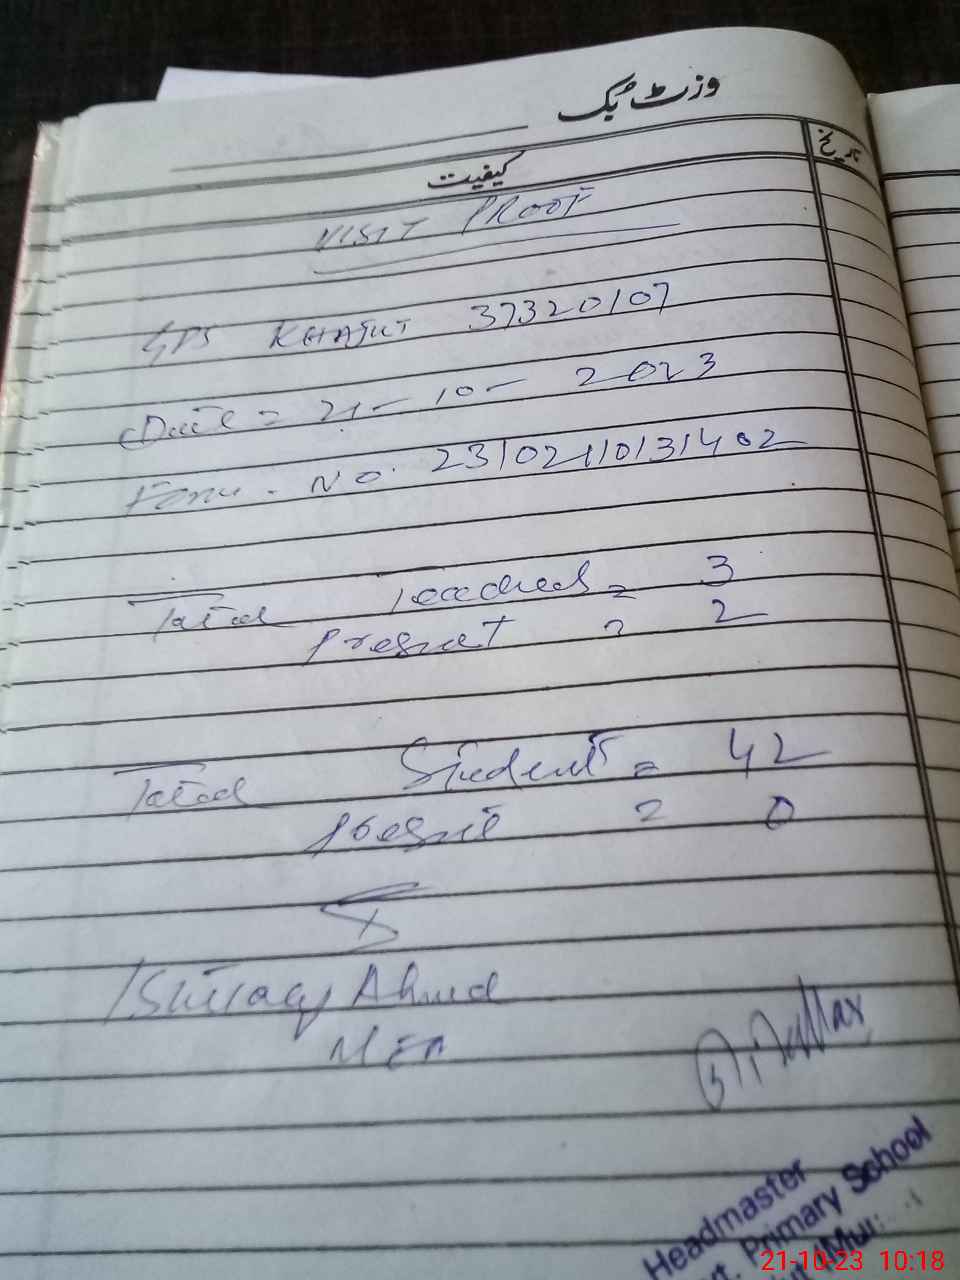 وزٹ بک
تاریخ
کیفیت
VISIT PROOF
GPS KHAJUT 37320107
Date = 21-10-2023
Form. No. 23102110131402
Total Teachers = 3
Present = 2
Total Students = 42
Present = 0
Ishtiaq Ahmed
MEA
Headmaster
Primary School
21-10-23 10:18